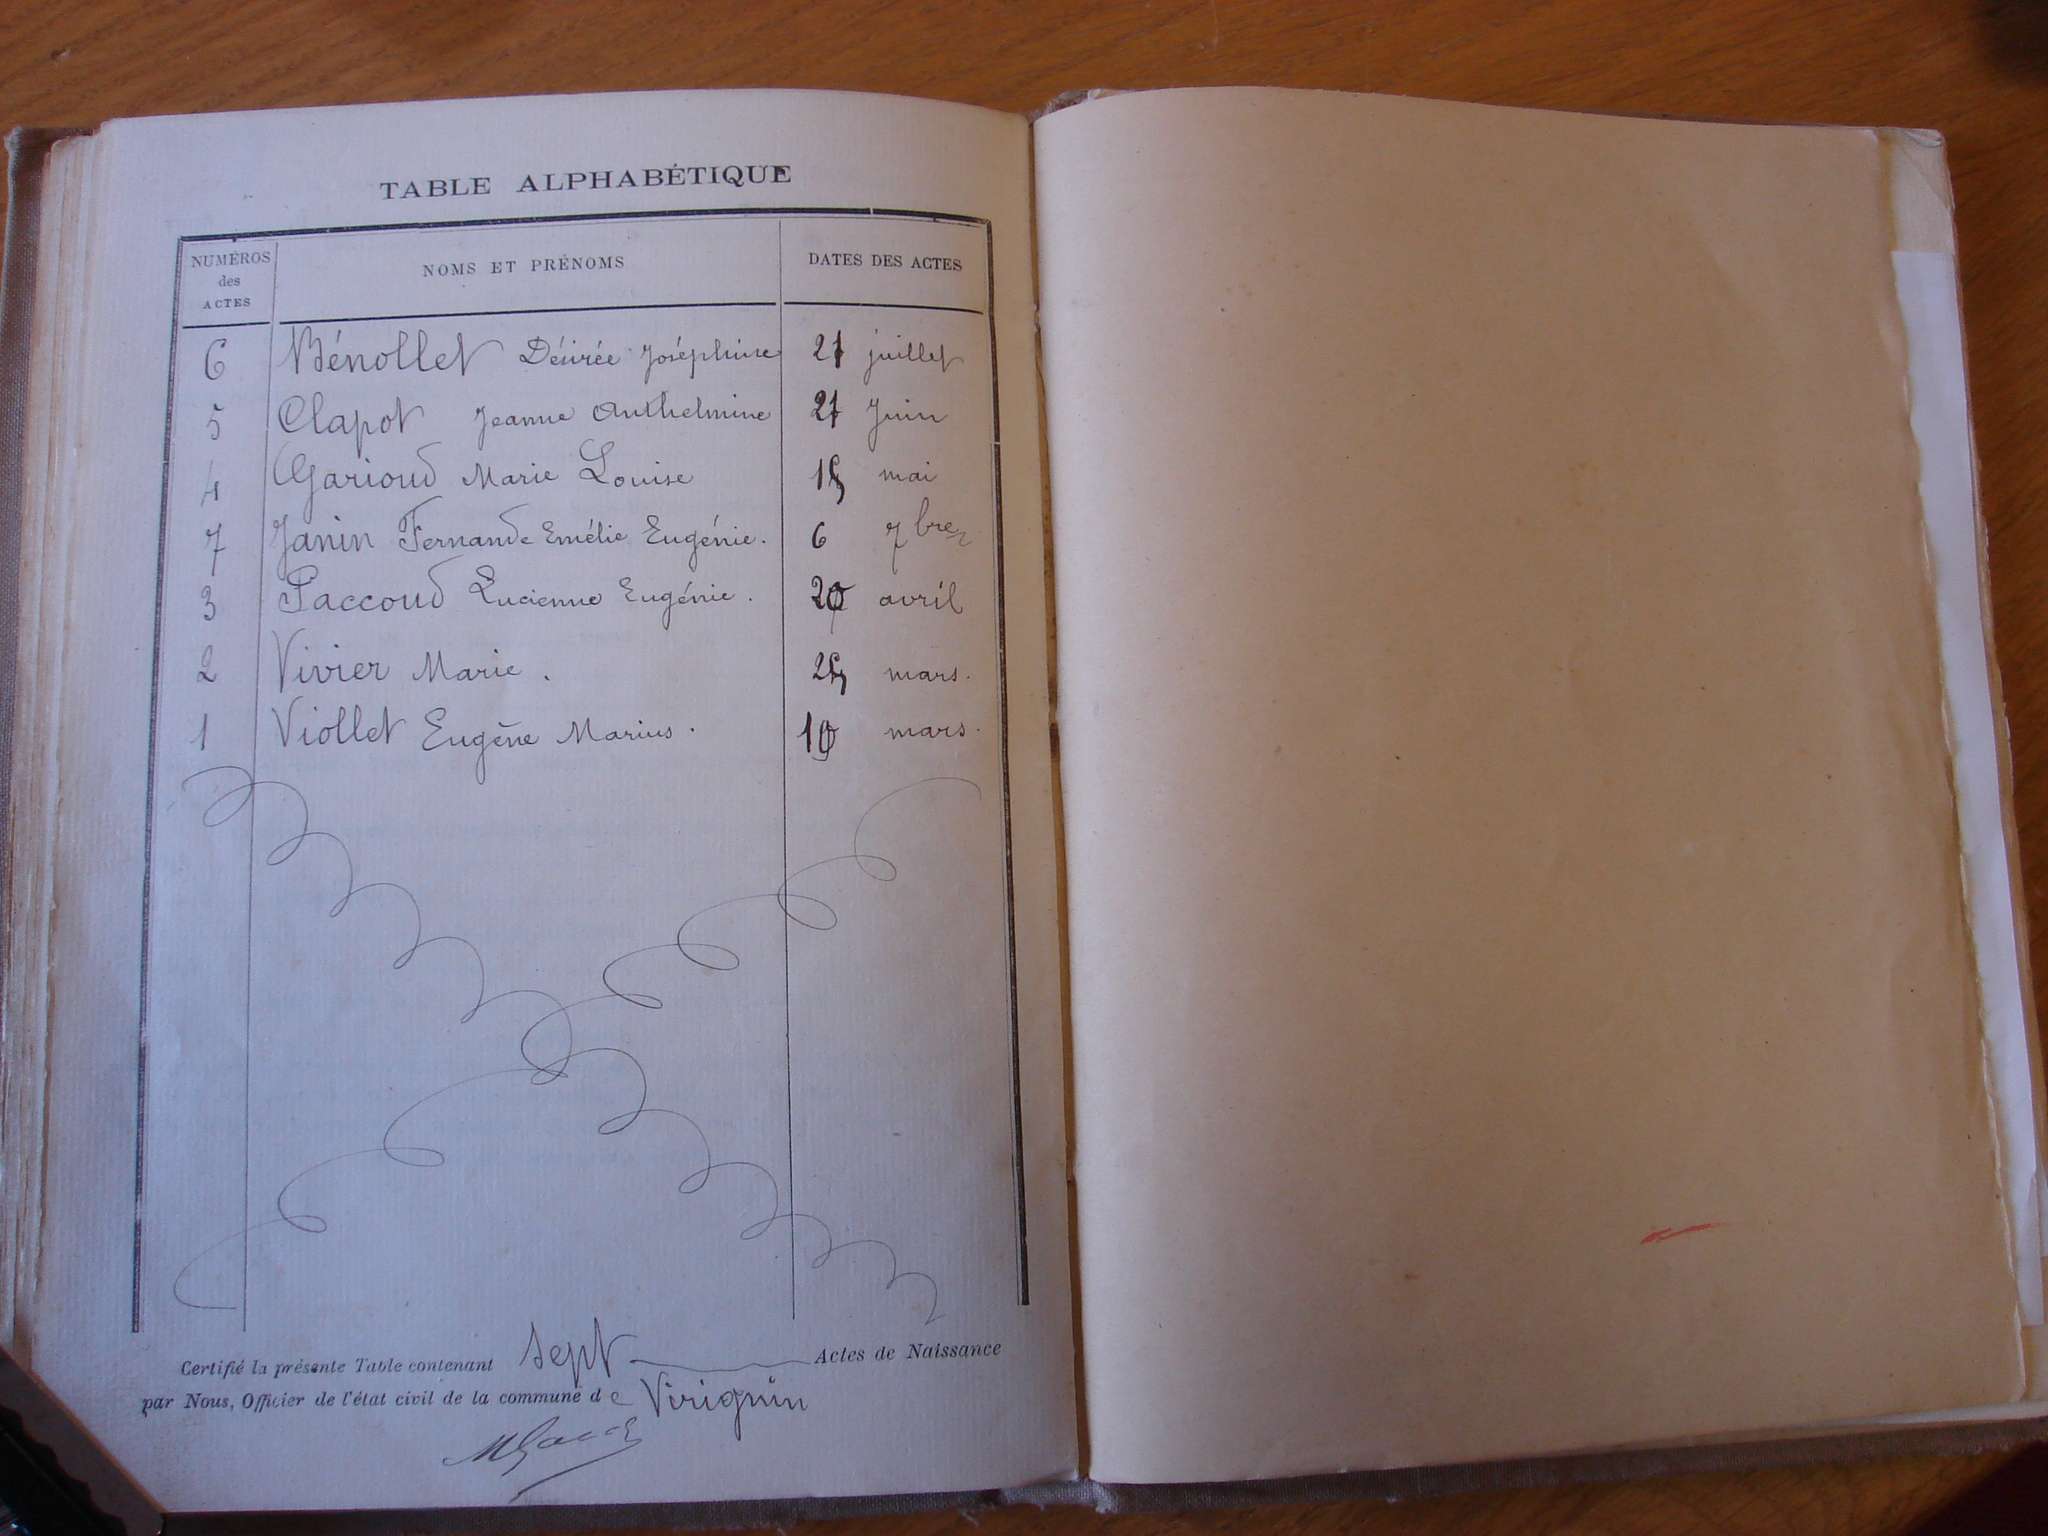 TABLE ALPHABÉTIQUE
NUMÉROS des ACTES NOMS ET PRÉNOMS DATES DES ACTES
6 Bénollet Désirée Joséphine 21 juillet
5 Clapot Jeanne Anthelmine 21 Juin
4 Garioud Marie Louise 15 mai
7 Janin Fernande Emélie Eugénie. 6 7bre
3 Paccoud Lucienne Eugénie. 20 avril
2 Vivier Marie. mars.
1 Viollet Eugène Marius. 10 mars.
Certifié la présente Table contenant sept Actes de Naissance
par Nous, Officier de l'état civil de la commune de Virignin